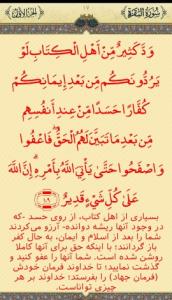 سُورَةُ البَقَرَةِ
١٧
الجُزءُ الأوّلُ
وَدَّ كَثِيرٌ مِّنْ أَهْلِ الْكِتَابِ لَوْ
يَرُدُّونَكُم مِّن بَعْدِ إِيمَانِكُمْ
كُفَّارًا حَسَدًا مِّنْ عِندِ أَنفُسِهِم
مِّن بَعْدِ مَا تَبَيَّنَ لَهُمُ الْحَقُّ ۖ فَاعْفُوا
وَاصْفَحُوا حَتَّىٰ يَأْتِيَ اللَّهُ بِأَمْرِهِ ۗ إِنَّ اللَّهَ
عَلَىٰ كُلِّ شَيْءٍ قَدِيرٌ
بسیاری از اهل کتاب، از روی حسد -که
در وجود آنها ریشه دوانده- آرزو می‌کردند
شما را بعد از اسلام و ایمان، به حال کفر
باز گردانند؛ با اینکه حق برای آنها کاملا
روشن شده است. شما آنها را عفو کنید و
گذشت نمایید؛ تا خداوند فرمان خودش
(فرمان جهاد) را بفرستد؛ خداوند بر هر
چیزی تواناست.